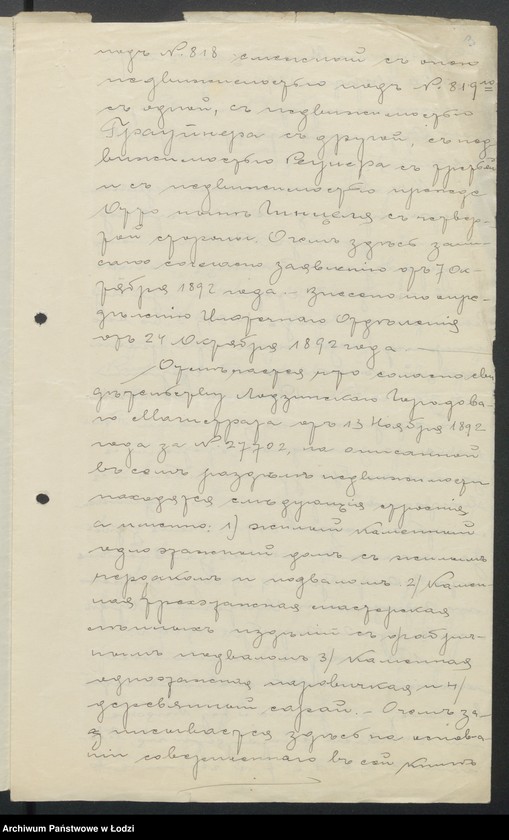 подъ № 818 смежной съ оною
недвижимостью подъ № 819
съ одной, съ недвижимостью
съ другой, съ нед
вижимостью съ третьей
и съ недвижимостью
Отто съ четвер-
той стороны. О чемъ здѣсь запи-
сано согласно заявленію отъ 7 Ок-
тября 1892 года. Внесено по опре-
дѣленію Ипотечнаго Отдѣленія
отъ 24 Октября 1892 года
что согласно сви
дѣтельству Лодзинскаго Городова-
го Магистрата отъ 13 Ноября 1892
года за № 27702, на описанной
въ семъ раздѣлѣ недвижимости
находятся слѣдующія строенія
а именно: 1) жилый каменный
одноэтажный домъ съ жилымъ
чердакомъ и подваломъ 2) Камен-
ная трехэтажная мастерская
издѣлій съ фабрич-
нымъ подваломъ 3) Каменная
одноэтажная и 4)
деревянный сарай. - О чемъ за-
писывается здѣсь на основа-
ніи совершеннаго въ сей книгѣ
Archiwum Państwowe w Łodzi